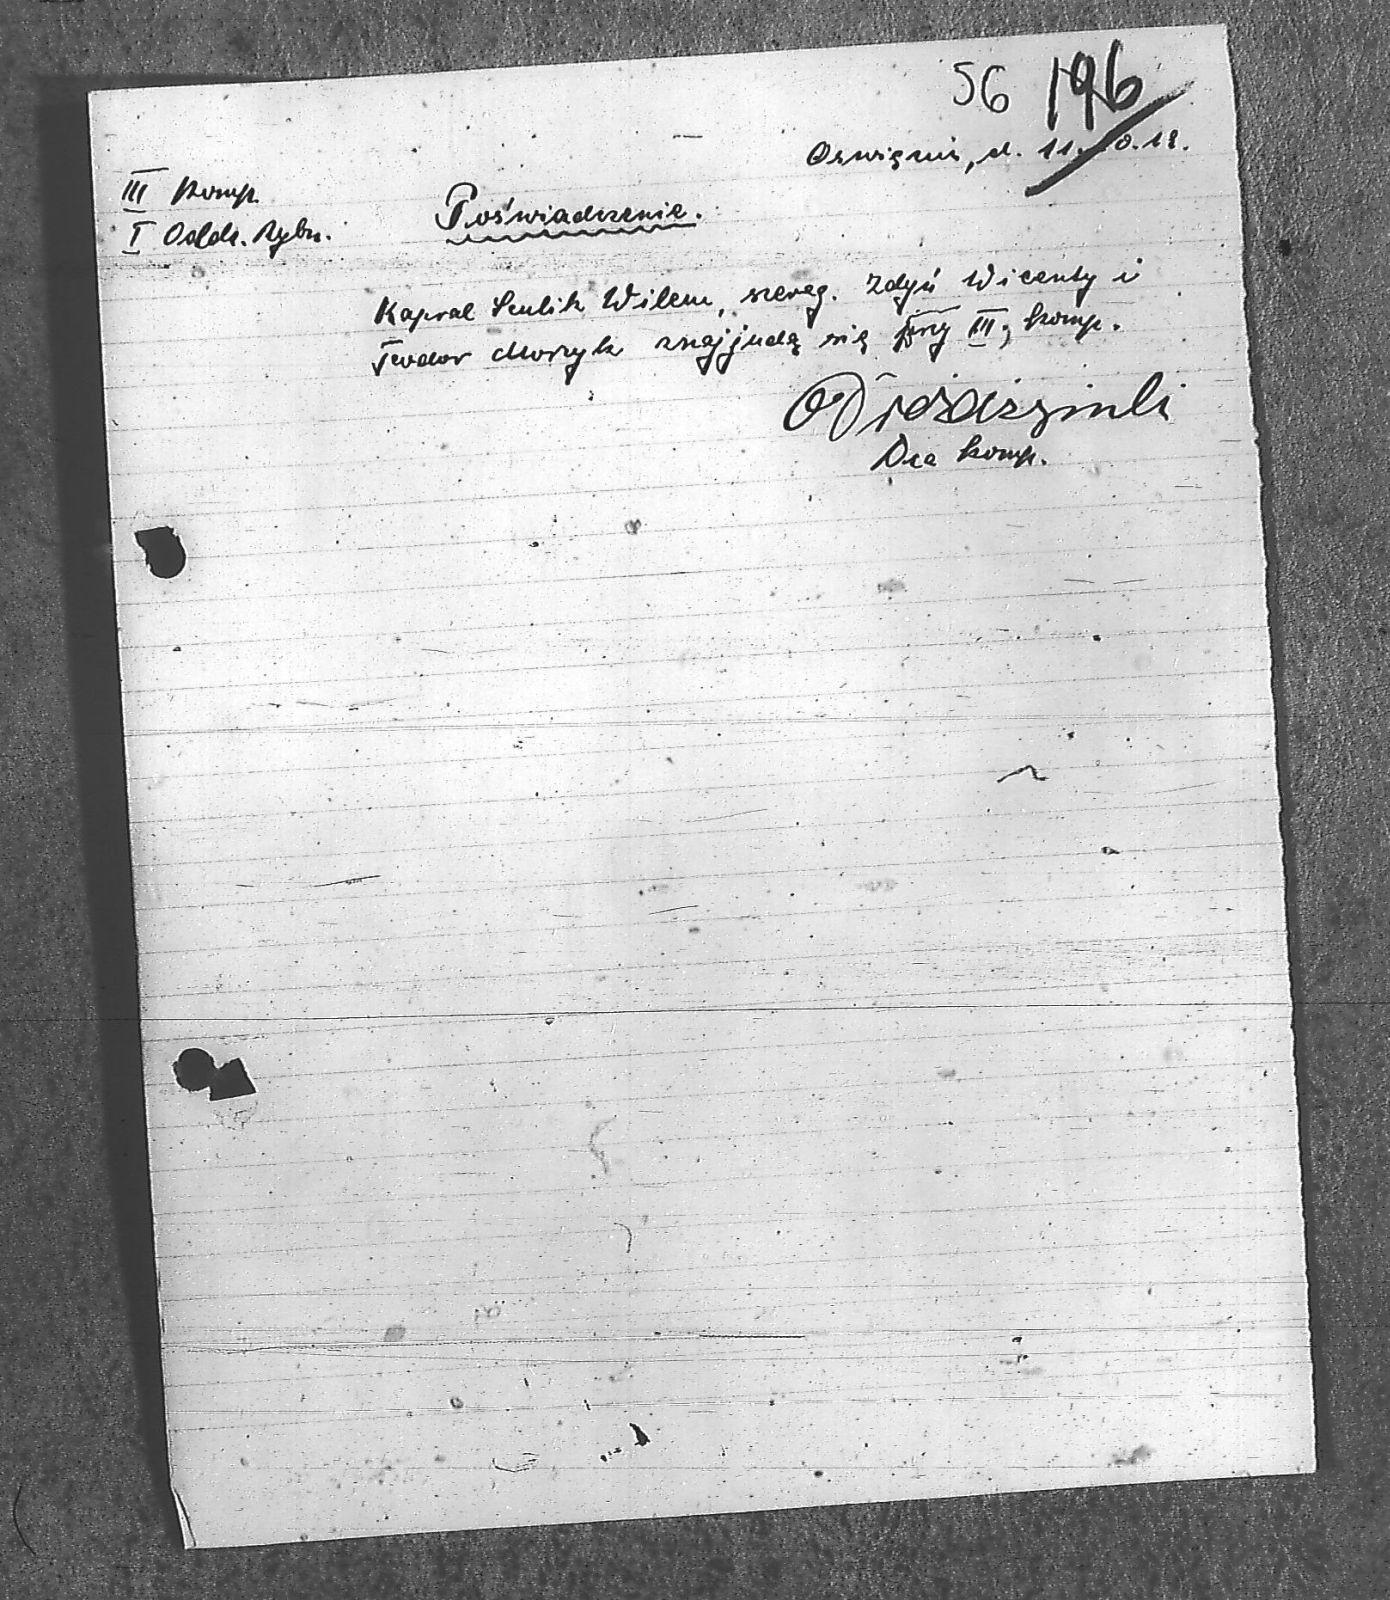 56 196
Oswięcim, d. 11.10.19.
III komp.
I Oddz. Rybn.
Poświadczenie.
Kapral Wilem, szereg. Zdyń Wicenty i
Teodor znajjudą się przy III, komp.
Dca komp.